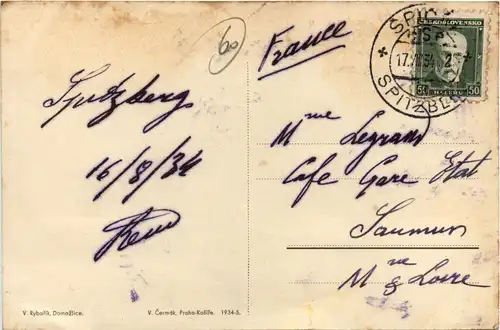 60
France
ČESKOSLOVENSKO
17.VIII.34
SPITZB
50 HALÉŘŮ 50
Spitzberg
16/8/34
Mme Legrand
Cafe Gare Etat
Saumur
Me & Loire
V. Rybařík, Domažlice.
V. Čermák, Praha-Košíře. 1934-5.